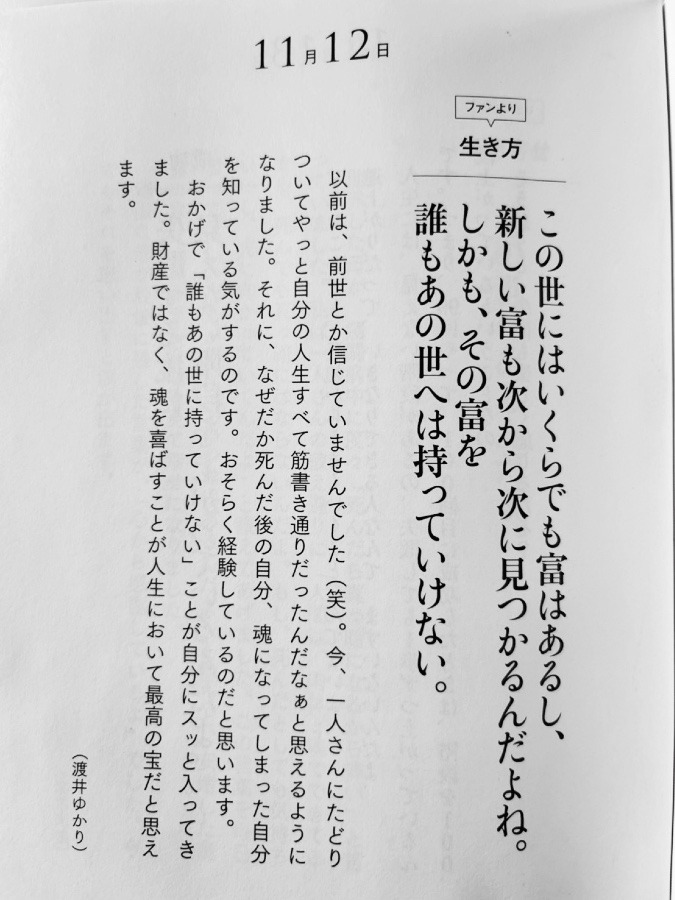 11月12日
ファンより
生き方
この世にはいくらでも富はあるし、
新しい富も次から次に見つかるんだよね。
しかも、その富を
誰もあの世へは持っていけない。
以前は、前世とか信じていませんでした（笑）。今、一人さんにたどり
ついてやっと自分の人生すべて筋書き通りだったんだなぁと思えるように
なりました。それに、なぜだか死んだ後の自分、魂になってしまった自分
を知っている気がするのです。おそらく経験しているのだと思います。
おかげで「誰もあの世に持っていけない」ことが自分にスッと入ってき
ました。財産ではなく、魂を喜ばすことが人生において最高の宝だと思え
ます。
（渡井ゆかり）